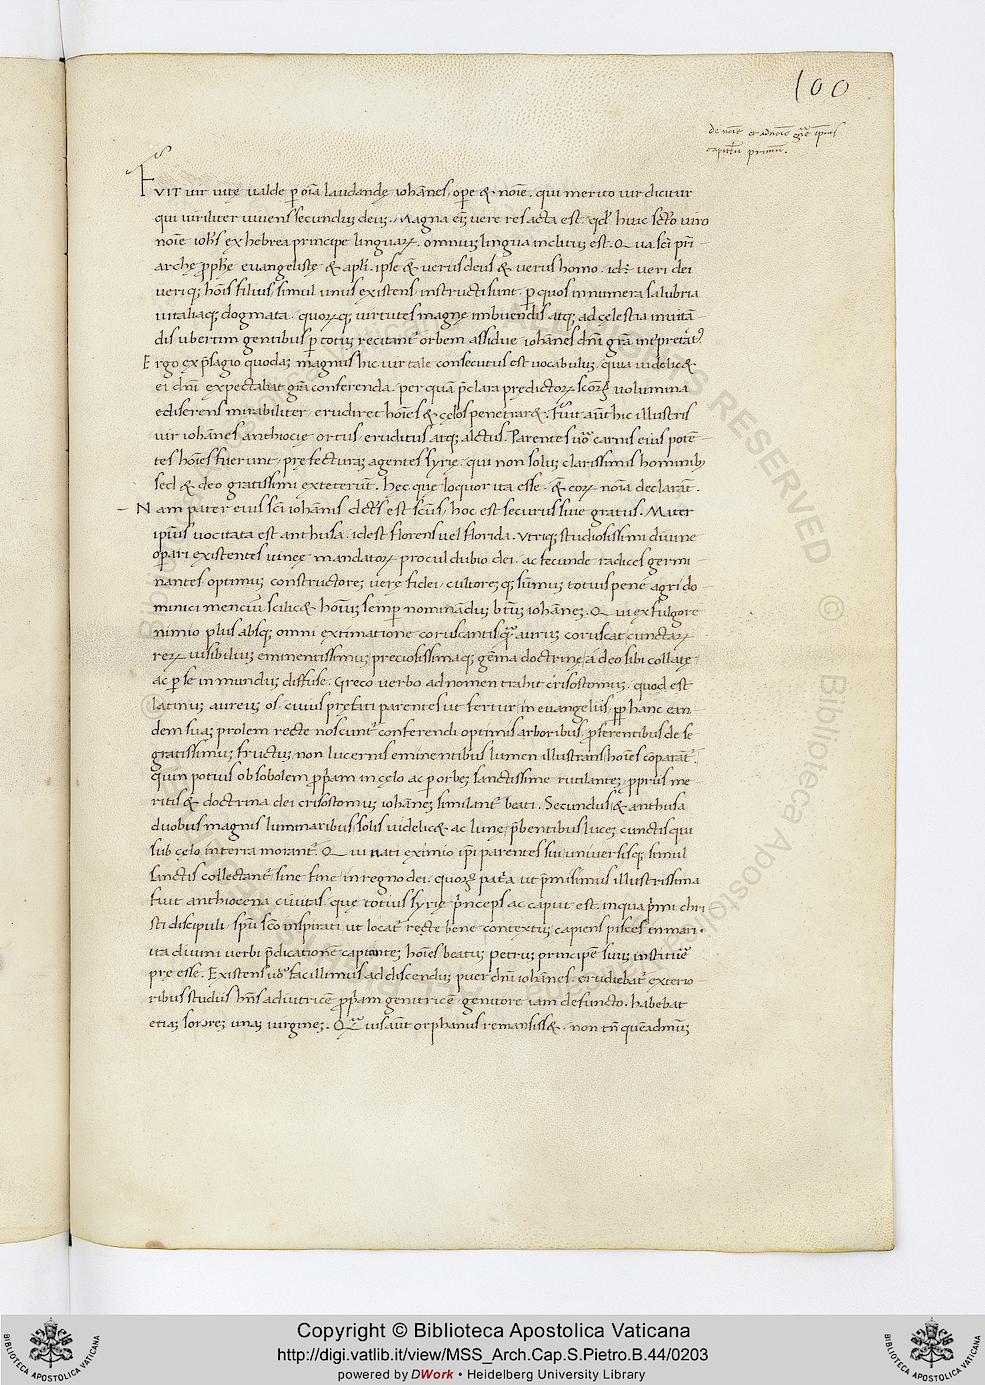 100
de noīe et adnoīe gr̄e ip̄ius
capitulū primū.
FVIT uir uitę ualde p̱ oīa laudandę iohannes, ope & noīe. qui merito uir dicitur
qui uiriliter uiuens secundus deus. Magna eī uere res acta est. qđ huic sc̄to uiro
noīe ioh̄is ex hebrea principe linguaꝝ. omnium lingua inclitus est. Qua sc̄i pr̄i
archę ꝓph̄ę euangelistę & apl̄i. ipse & uerus deus & uerus homo. id ē ueri dei
ueriq; hōis filius simul unus existens instructi sunt. p̱ quos innumera salubria
uitaliaq; dogmata. quoꝝq; uirtutes magnę imbuendis atq; ad cęlestia inuitā
dis ubertim gentibus p̱ totum recitant᷑ orbem assidue iohannes dn̄i gr̄a inte̱rpretat᷑.
Ergo ex p̄sagio quodaȝ magnus hic uir tale consecutus est uocabuluȝ. quia uidelic&
ei dn̄i expectabat gr̄a conferenda. per quā p̄clara prędictoꝝ sc̄oꝝ uolumina
ediserens mirabiliter erudiret hōies & cęlos penetrar&. Fuit aūt hic illustris
uir iohannes anthiocię ortus eruditus atq; alctus. Parentes uō carnis eius potē
tes hōies fuerunt pręfecturaȝ agentes syrię. qui non soluȝ clarissimis hominibȝ
sed & deo gratissimi exteterūt. hec que loquor ita esse & eoꝝ noīa declarāt.
Nam pater eius sc̄i iohannis dictus est sc̄dus, hoc est securus siue gratus. Mater
ip̄ius uocitata est anthusa. idest florens uel florida. Vtriq; studiosissimi diuine
operari existentes uineę mandatoꝝ procul dubio dei. ac fecunde radices germi
nantes optimuȝ constructoreȝ uerę fidei cultoreȝq; sūmuȝ totius pene agri do
minici menciū scilic& hoīuȝ semp̱ nominanduȝ btūȝ iohāneȝ. Qui ex fulgore
nimio plus absq; omni extimatione coruscantis q̄ auruȝ coruscat cunctaꝝ
reꝝ uisibiliuȝ eminentissimus preciosissimaq; gēma doctrinę a deo sibi collatę
ac p̱ se in mundus diffuse. Greco uerbo ad nomen trahit crisostomus. quod est
latinus aureuȝ os. cuius prefati parentes ut fertur in euangeliis ꝓp̱ hanc ean
dem suaȝ prolem recte noscunt᷑ conferendi optimis arboribus ꝓferentibus de se
gratissimuȝ fructuȝ, non lucernis eminentibus lumen illustrans hōies cōparāt᷑.
quin potius ob sobolem ꝓp̱am in cęlo ac p̱ orbeȝ sanctissime rutilanteȝ ꝓpriis me
ritis & doctrina dei crisostomuȝ iohāneȝ similant᷑ beati. Secundus & anthusa
duobus magnis luminaribus solis uidelic& ac lunę, p̄bentibus luceȝ cunctis qui
sub cęlo in terra morant᷑. Qui nati eximio ip̄i parentes sui uniuersisq; simul
sanctis collectant᷑ sine fine in regno dei. quoꝝ patria ut p̄misimus illustrissima
fuit anthiocena ciuitas. que totius syrię princeps ac caput est. in qua primi chri
sti discipuli spū sc̄o inspirati ut locat᷑ recte bene contextuȝ capiens pisces in mari.
ita diuini uerbi p̄dicatione capiantes hōies beatuȝ petruȝ principē suū instituē
pre esse. Existens uō facillimus ad discenduȝ puer dn̄i iohānes. erudiebat᷑ exterio
ribus studiis hn̄s adiutricē ꝓp̱am genitricē genitore iam defuncto. habebat
etiaȝ sororeȝ unaȝ uirgineȝ. Quāuis aūt orphanus remansiss&. non tn̄ queadmūȝ
© Biblioteca Apostolica Vaticana ALL RIGHTS RESERVED
Copyright © Biblioteca Apostolica Vaticana
http://digi.vatlib.it/view/MSS_Arch.Cap.S.Pietro.B.44/0203
powered by DWork • Heidelberg University Library
BIBLIOTECA APOSTOLICA VATICANA
BIBLIOTECA APOSTOLICA VATICANA